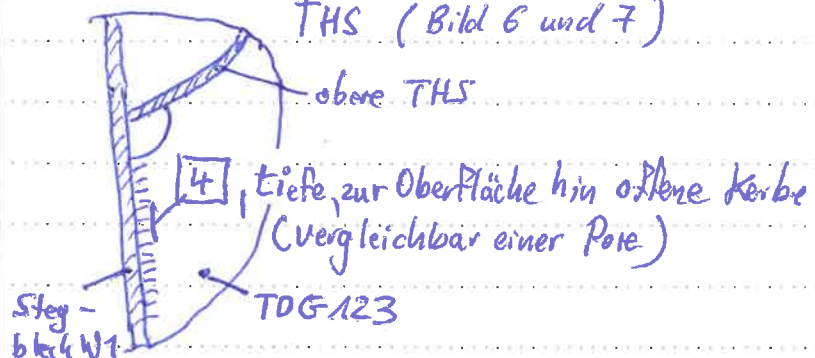 THS (Bild 6 und 7)
obere THS
4, tiefe, zur Oberfläche hin offene Kerbe
(vergleichbar einer Pore)
TOG123
Steg-
blech W1